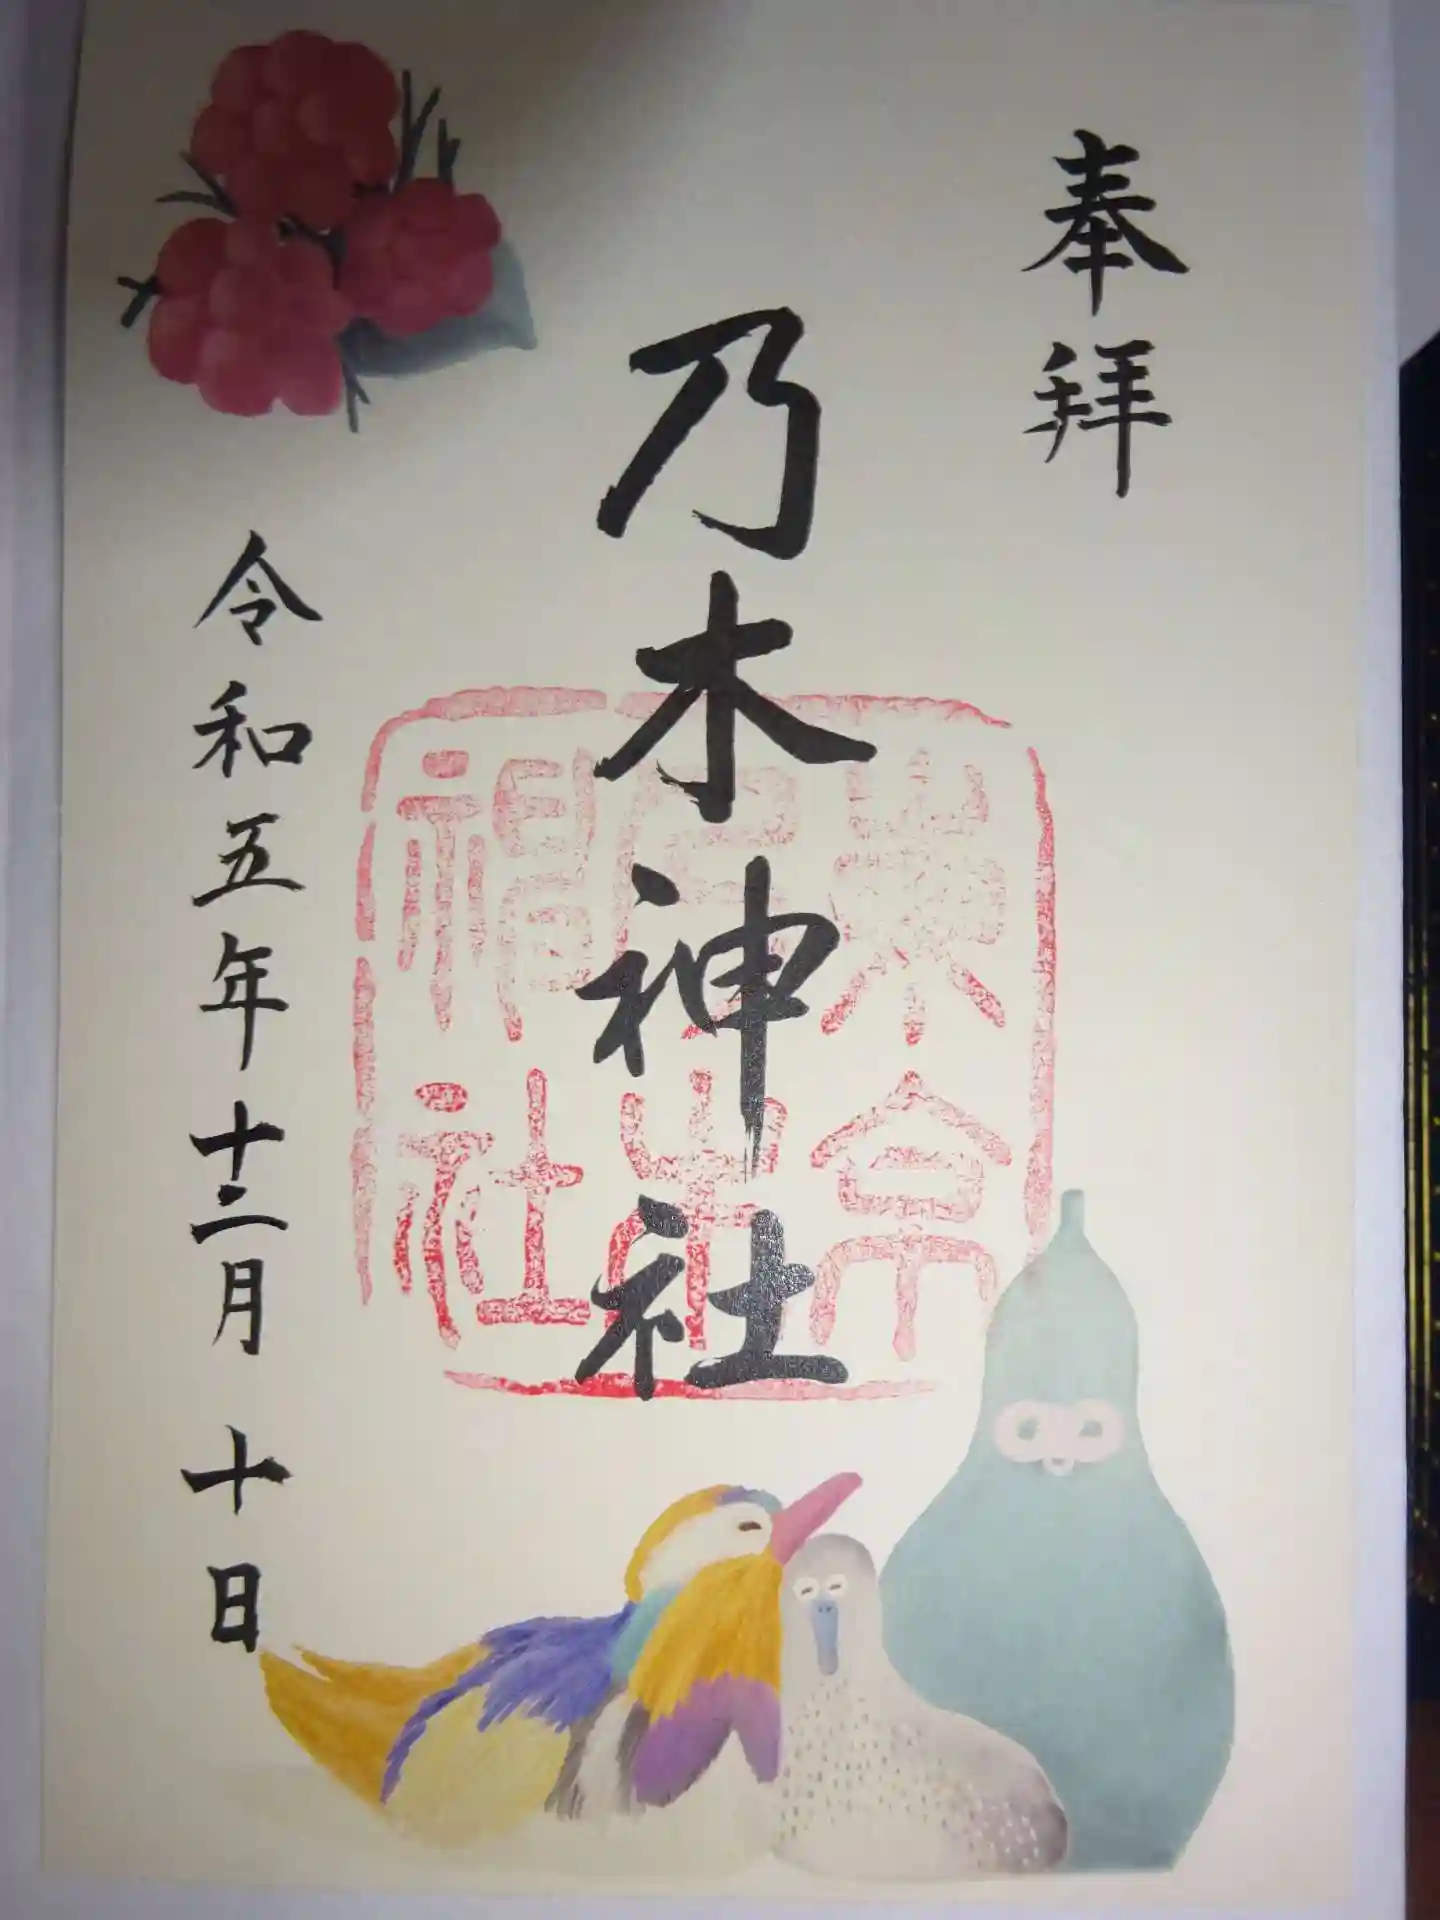 奉拝
乃木神社
東京
乃木
神社
令和五年十二月十日